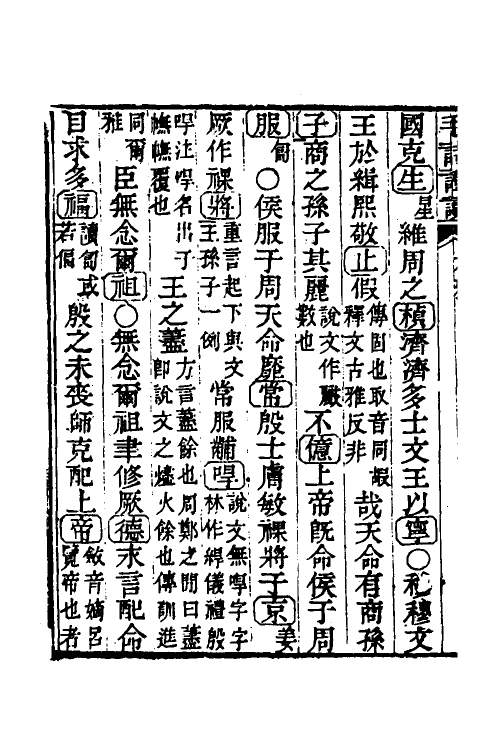 國克生星維周之楨濟濟多士文王以寧○穆穆文
王於緝熙敬止假傳固也取音同嘏釋文古雅反非哉天命有商孫
子商之孫子其麗說文作數也不億上帝旣命侯于周
服匐○侯服于周天命靡常殷士膚敏祼將于京姜
厥作祼將重言起下與文王孫子一例常服黼冔說文無冔字字林作儀禮殷
冔注冔名出于幠幠覆也王之藎方言藎餘也周鄭之閒曰藎卽說文之火餘也傳訓進
同爾雅臣無念爾祖○無念爾祖聿修厥德永言配命
自求多福讀匐或若偪殷之未喪師克配上帝音嫡呂覽帝也者